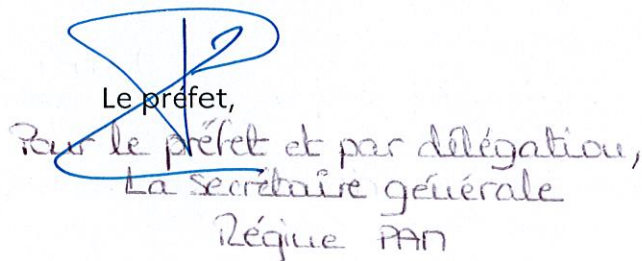 Le préfet,
Pour le préfet et par délégation,
La secrétaire générale
Régine PAM